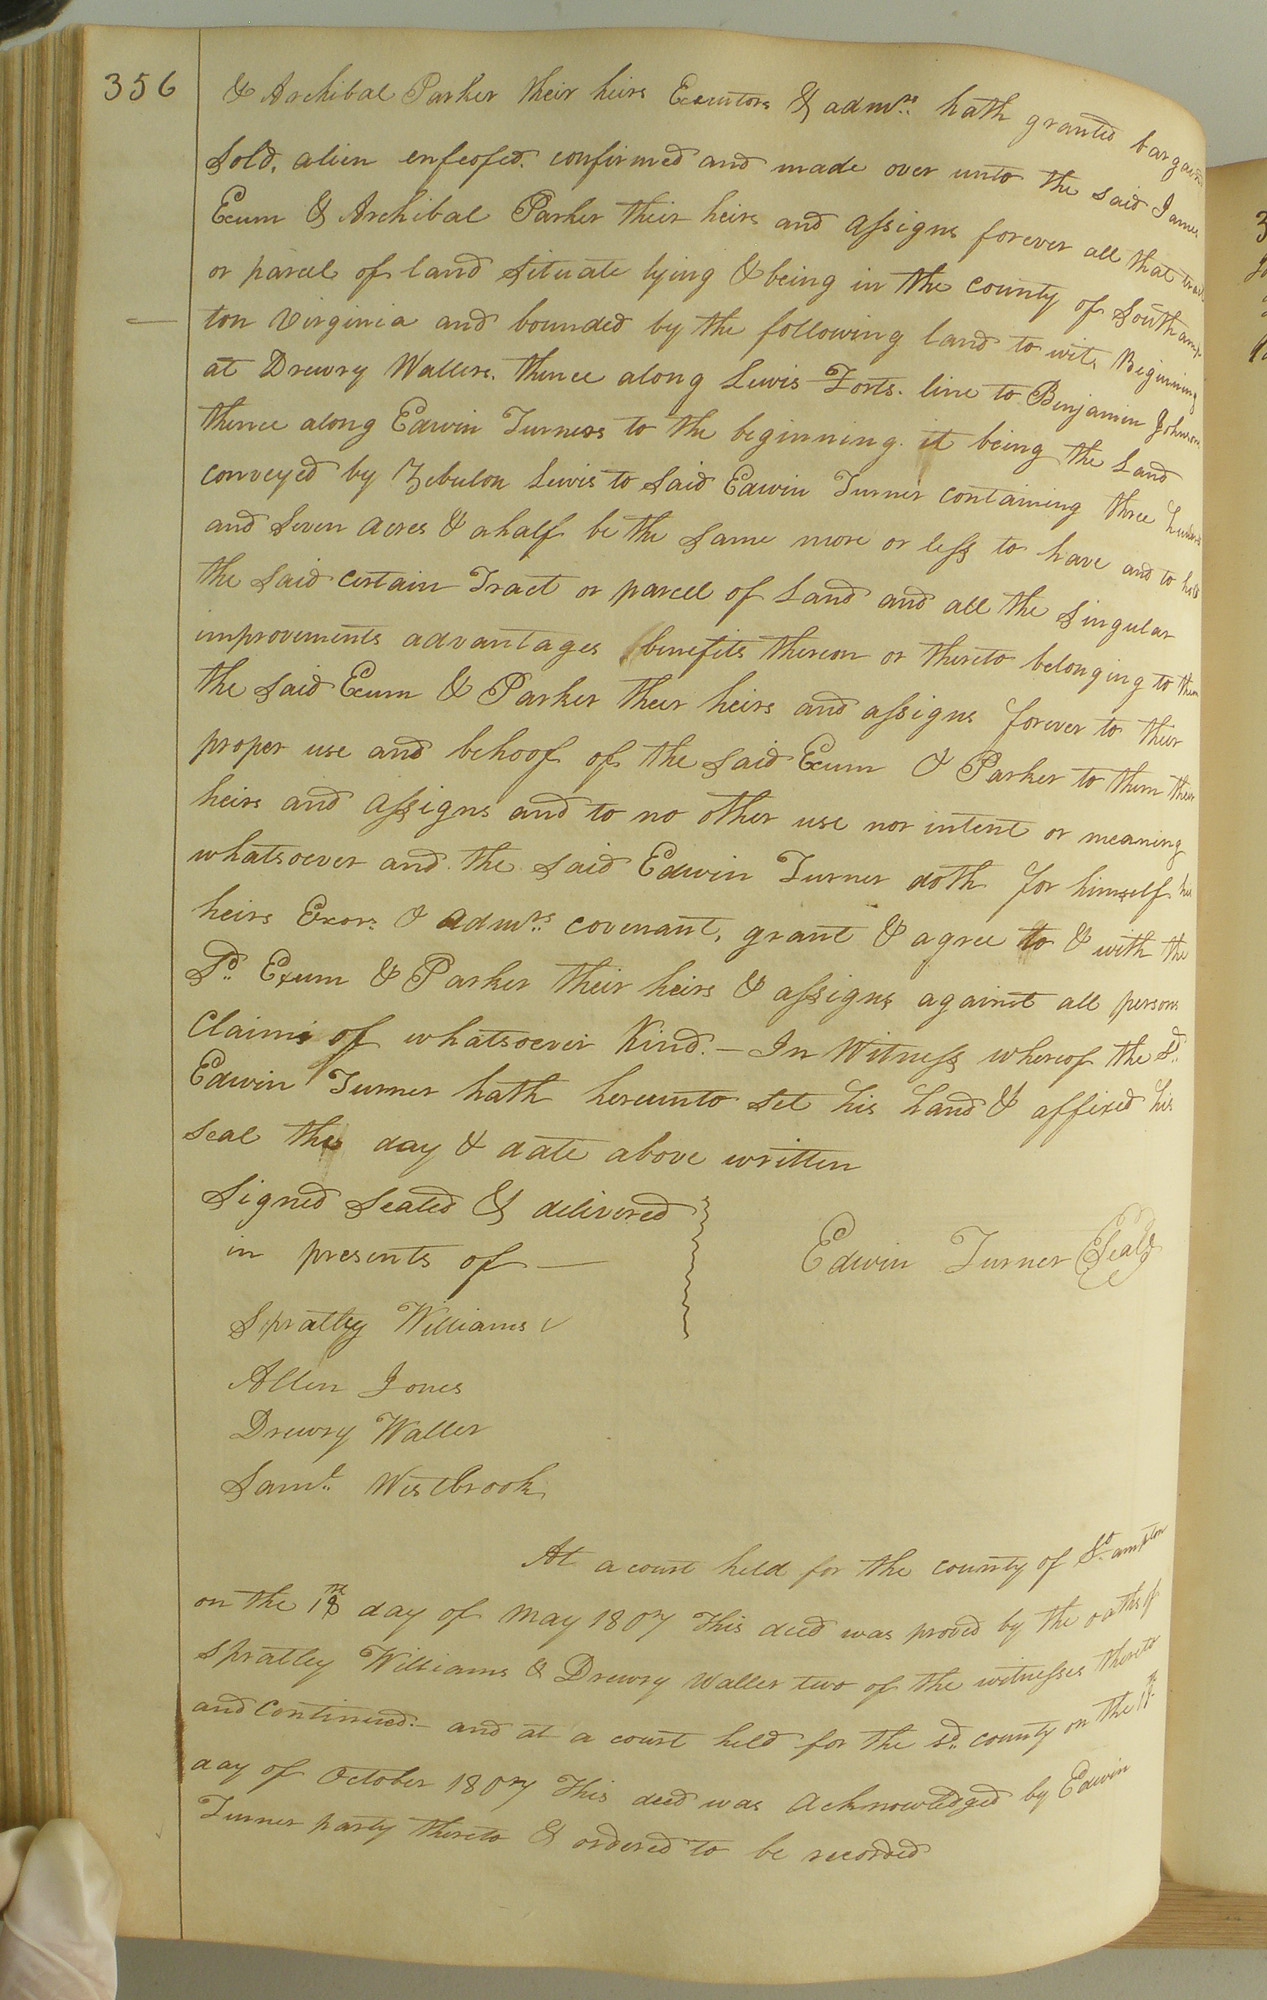 356
& Archibal Parker their heirs Executors & admrs. hath granted bargain
Sold, alien enfeofed. confirmed and made over unto the said James
Exum & Archibal Parker their heirs and assigns forever all that tract
or parcel of land situate lying & being in the county of Southamp-
ton Virginia and bounded by the following land to wit, Beginning
at Drewry Wallers. thence along Lewis Forts. line to Benjamin Johnson
thence along Edwin Turners to the beginning. it being the Land
conveyed by Zebulon Lewis to said Edwin Turner containing three hundred
and seven acres & a half be the same more or less to have and to hold
the said certain Tract or parcel of Land and all the singular
improvements advantages benefits thereon or thereto belonging to them
the said Exum & Parker their heirs and assigns forever to their
proper use and behoof of the said Exum & Parker to them their
heirs and assigns and to no other use nor intent or meaning
whatsoever and the said Edwin Turner doth for himself his
heirs Exors. & admrs. covenant, grant & agree to & with the
Sd. Exum & Parker their heirs & assigns against all persons
Claims of whatsoever Kind.— In Witness whereof the sd.
Edwin Turner hath hereunto set his hand & affixed his
seal the day & date above written
Signed Sealed & delivered
in presents of —
Edwin Turner Seal
Spratley Williams
Allen Jones
Drewry Waller
Saml. Westbrook
At a court held for the county of So.ampton
on the 18th day of May 1807 This deed was proved by the oaths of
Spratley Williams & Drewry Waller two of the witnesses thereto
and Continued.— and at a court held for the sd. county on the
day of October 1807 This deed was acknowledged by Edwin
Turner party thereto & ordered to be recorded